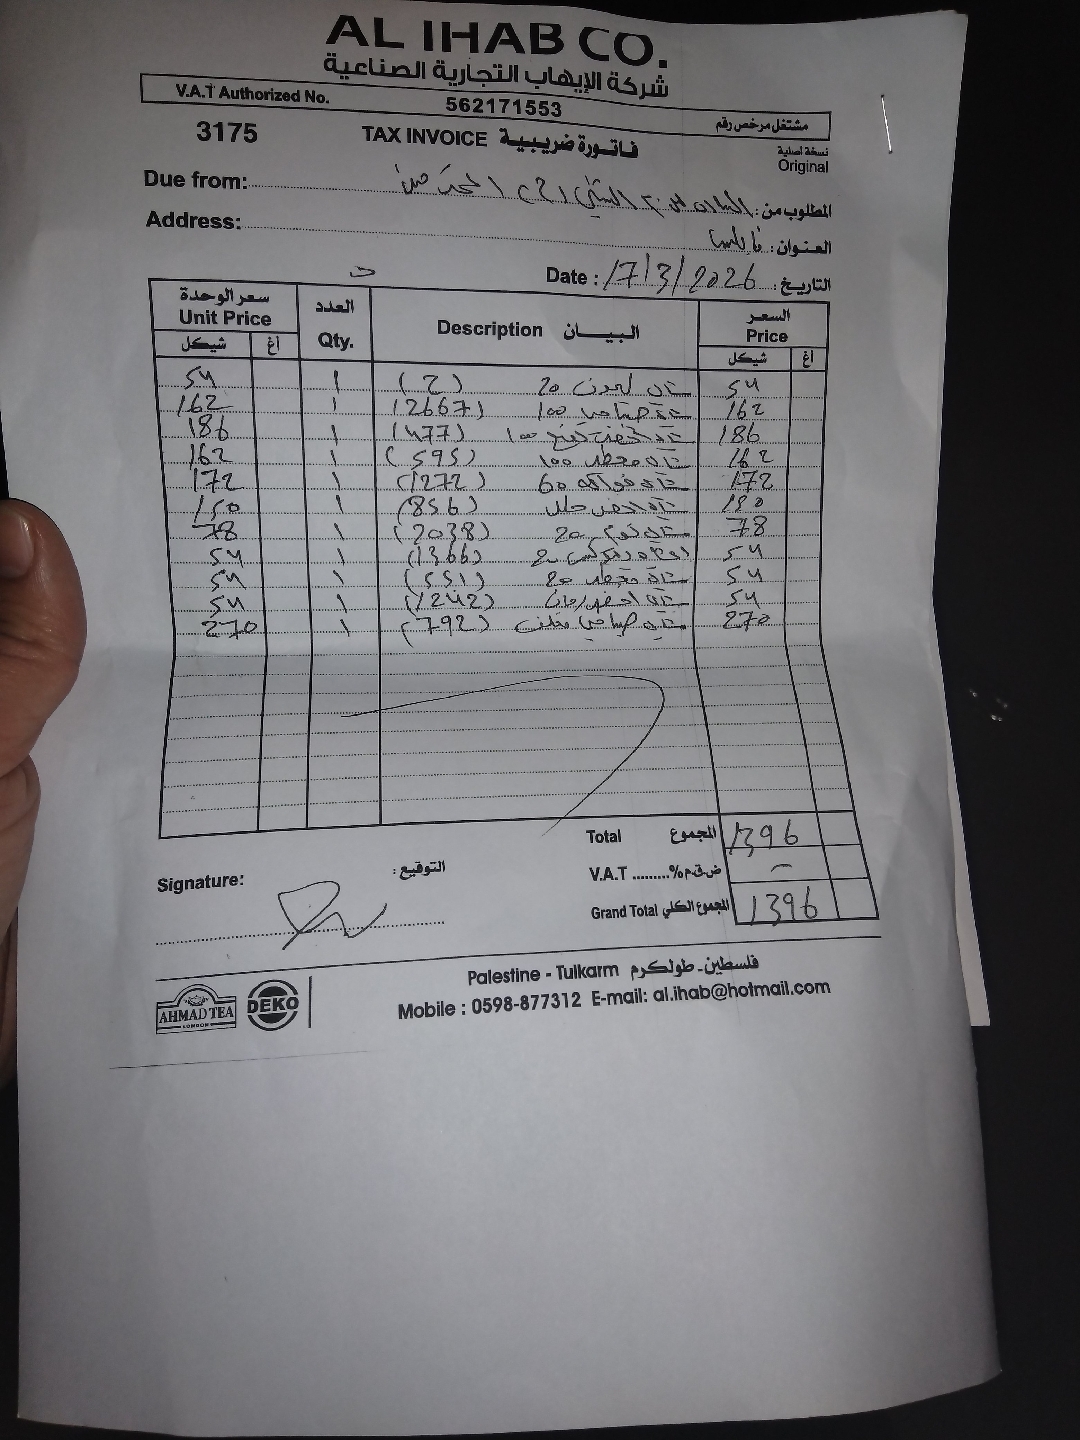 AL IHAB CO.
شركة الإيهاب التجارية الصناعية
V.A.T Authorized No. 562171553 مشتغل مرخص رقم
3175 TAX INVOICE فاتورة ضريبية نسخة أصلية
Original
Due from: المطلوب من: السادة المحترمين
Address: العنوان: نابلس
Date : 17/3/2026 التاريخ:
سعر الوحدة العدد البيان السعر
Unit Price Qty. Description Price
شيكل أغ شيكل أغ
54 1 (2) شاي ليمون 20 54
162 1 (2667) شاي صباحي 100 162
186 1 (477) شاي اخضر 100 186
162 1 (595) شاي 100 162
172 1 (1272) شاي فواكه 60 172
150 1 (856) شاي اخضر 150
78 1 (2038) شاي 20 78
54 1 (1366) 20 54
54 1 (551) شاي 20 54
54 1 (1242) شاي اخضر رمان 54
270 1 (792) شاي صباحي 270
Total المجموع 1396
V.A.T .........% ض.ق.م -
Grand Total المجموع الكلي 1396
Signature: التوقيع:
Palestine - Tulkarm فلسطين - طولكرم
Mobile : 0598-877312 E-mail: al.ihab@hotmail.com
AHMAD TEA
LONDON
DEKO